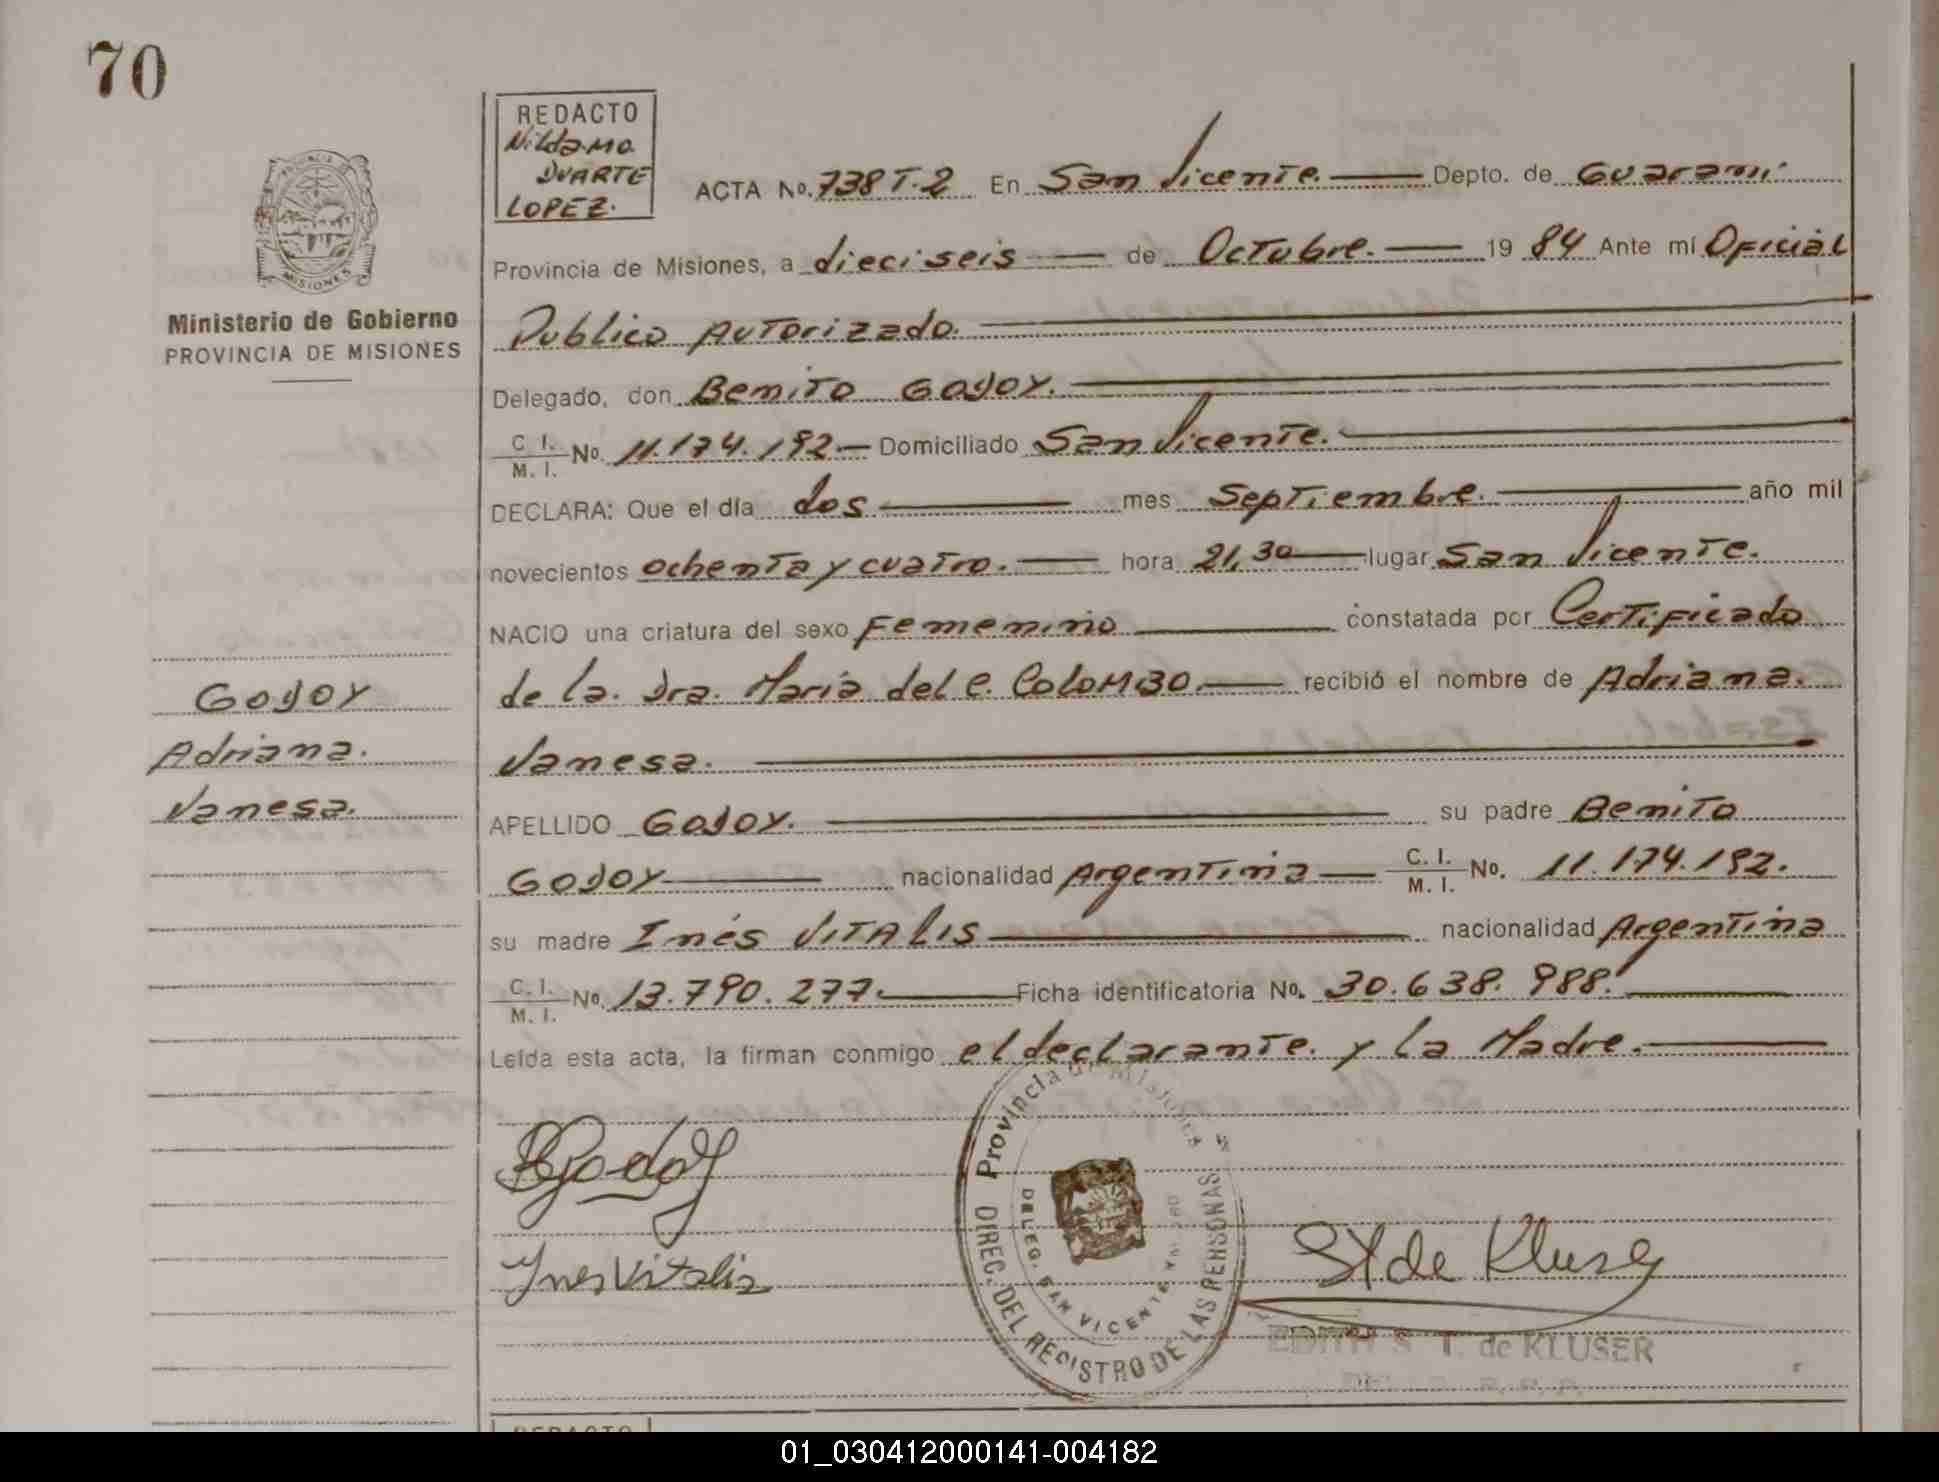 70
REDACTO
Nilda Mo.
DUARTE
LOPEZ.
ACTA No. 738 T-2 En San Vicente. Depto. de Guarani.
Provincia de Misiones, a dieciseis de Octubre. 19 84 Ante mí Oficial
Publico Autorizado.
Delegado, don Benito Godoy.
C. I. / M. I. No. 11.174.192 Domiciliado San Vicente.
DECLARA: Que el día dos mes Septiembre. año mil
novecientos ochenta y cuatro. hora 21,30 lugar San Vicente.
NACIO una criatura del sexo Femenino constatada por Certificado
de la. Dra. María del C. COLOMBO. recibió el nombre de Adriana.
Vanesa.
APELLIDO Godoy. su padre Benito
Godoy nacionalidad Argentina C. I. / M. I. No. 11.174.192.
su madre Inés VITALIS nacionalidad Argentina
C. I. / M. I. No. 13.790.277. Ficha identificatoria No. 30.638.988.
Leída esta acta, la firman conmigo el declarante. y la Madre.
PROVINCIA DE MISIONES
Ministerio de Gobierno
PROVINCIA DE MISIONES
Godoy
Adriana.
Vanesa.
BGodoy
Ines Vitalis
Provincia de Misiones
DIREC. DEL REGISTRO DE LAS PERSONAS
DELEG. SAN VICENTE
ST de Kluser
EDITH S. T. de KLUSER
REDACTO
01_030412000141-004182